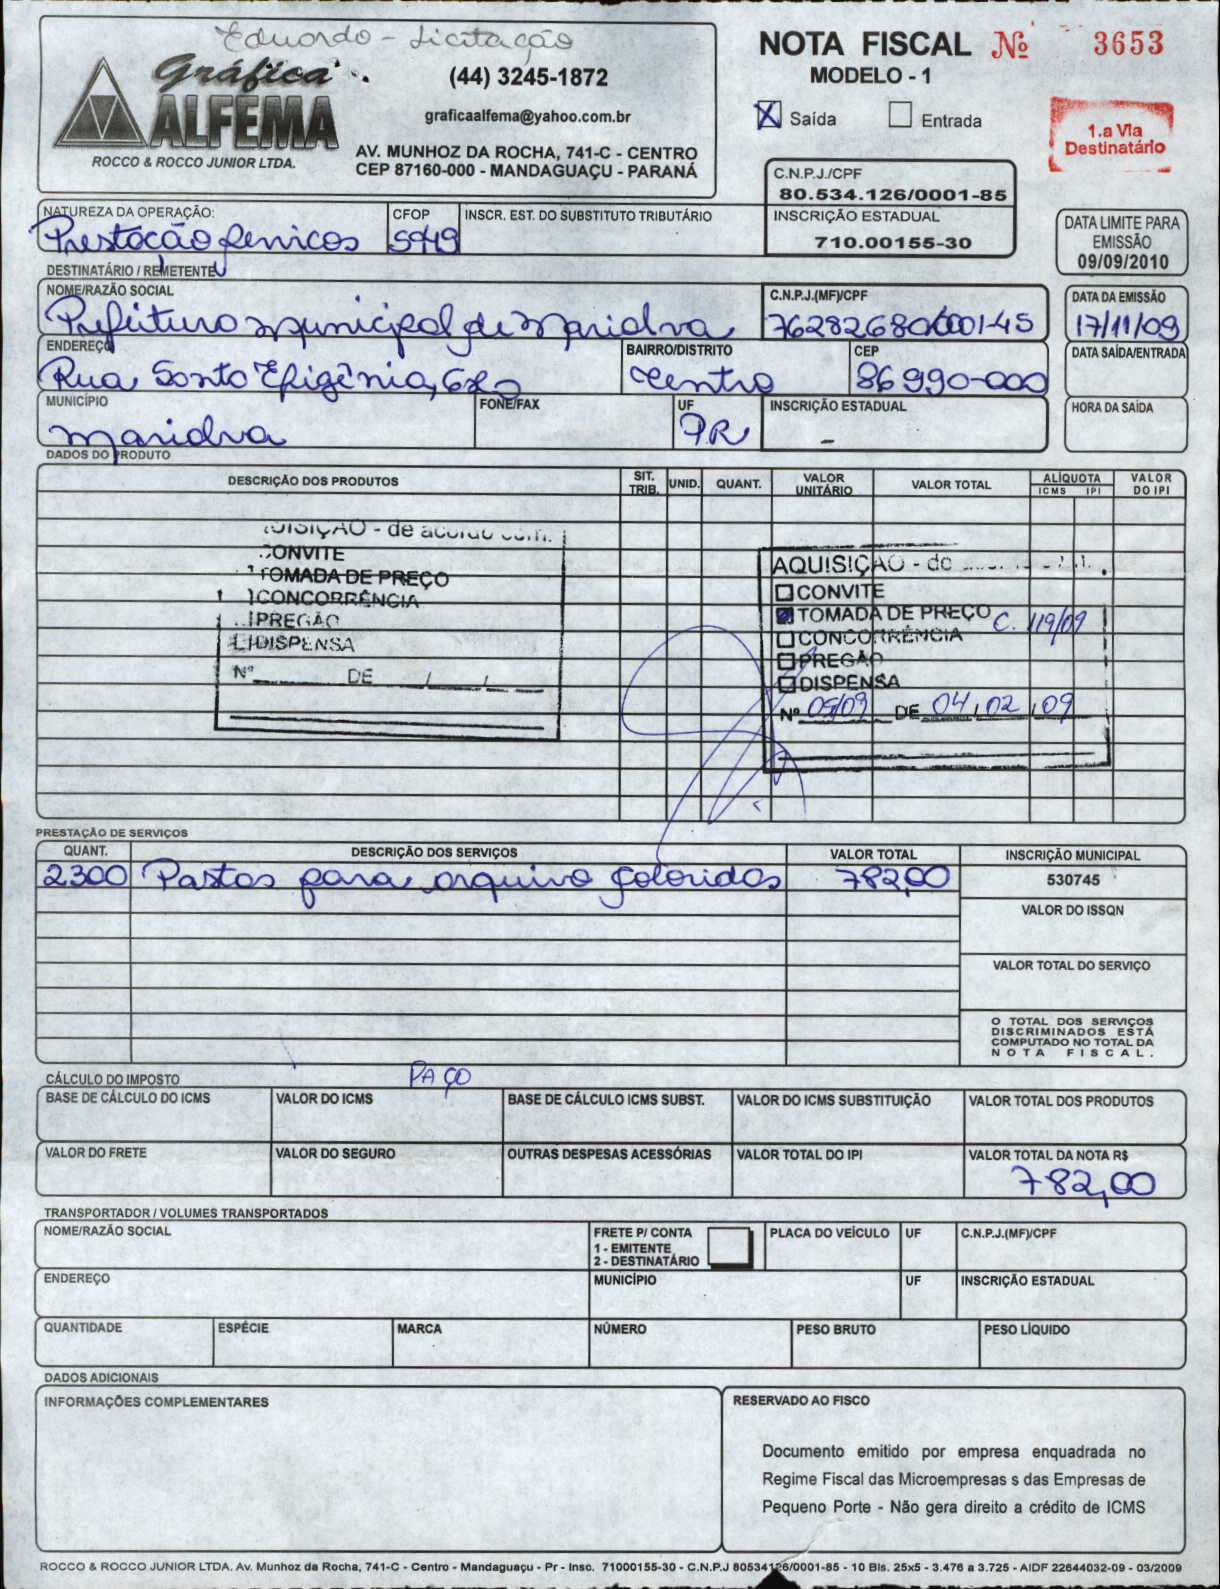 Eduardo - Licitação
Gráfica
ALFEMA
ROCCO & ROCCO JUNIOR LTDA.
(44) 3245-1872
graficaalfema@yahoo.com.br
AV. MUNHOZ DA ROCHA, 741-C - CENTRO
CEP 87160-000 - MANDAGUAÇU - PARANÁ
NOTA FISCAL Nº 3653
MODELO - 1
X Saída Entrada
1.a Via
Destinatário
C.N.P.J./CPF
80.534.126/0001-85
NATUREZA DA OPERAÇÃO: CFOP INSCR. EST. DO SUBSTITUTO TRIBUTÁRIO INSCRIÇÃO ESTADUAL
Prestação Serviços 5949 710.00155-30
DATA LIMITE PARA
EMISSÃO
09/09/2010
DESTINATÁRIO / REMETENTE
NOME/RAZÃO SOCIAL C.N.P.J.(MF)/CPF DATA DA EMISSÃO
Prefeitura Municipal de Marialva 76282680/0001-45 17/11/09
ENDEREÇO BAIRRO/DISTRITO CEP DATA SAÍDA/ENTRADA
Rua Santa Efigênia, 680 Centro 86990-000
MUNICÍPIO FONE/FAX UF INSCRIÇÃO ESTADUAL HORA DA SAÍDA
Marialva PR -
DADOS DO PRODUTO
DESCRIÇÃO DOS PRODUTOS SIT. TRIB. UNID. QUANT. VALOR UNITÁRIO VALOR TOTAL ALÍQUOTA ICMS IPI VALOR DO IPI
UISIÇÃO - de acordo com.
CONVITE
TOMADA DE PREÇO
CONCORRÊNCIA
PREGÃO
DISPENSA
Nº DE / /
AQUISIÇÃO - de
CONVITE
TOMADA DE PREÇO C. 119/09
CONCORRÊNCIA
PREGÃO
DISPENSA
Nº 05/09 DE 04/02/09
PRESTAÇÃO DE SERVIÇOS
QUANT. DESCRIÇÃO DOS SERVIÇOS VALOR TOTAL INSCRIÇÃO MUNICIPAL
2300 Pastas para arquivo coloridas 782,00 530745
VALOR DO ISSQN
VALOR TOTAL DO SERVIÇO
O TOTAL DOS SERVIÇOS
DISCRIMINADOS ESTÁ
COMPUTADO NO TOTAL DA
NOTA FISCAL.
PAÇO
CÁLCULO DO IMPOSTO
BASE DE CÁLCULO DO ICMS VALOR DO ICMS BASE DE CÁLCULO ICMS SUBST. VALOR DO ICMS SUBSTITUIÇÃO VALOR TOTAL DOS PRODUTOS
VALOR DO FRETE VALOR DO SEGURO OUTRAS DESPESAS ACESSÓRIAS VALOR TOTAL DO IPI VALOR TOTAL DA NOTA R$
782,00
TRANSPORTADOR / VOLUMES TRANSPORTADOS
NOME/RAZÃO SOCIAL FRETE P/ CONTA PLACA DO VEÍCULO UF C.N.P.J.(MF)/CPF
1 - EMITENTE
2 - DESTINATÁRIO
ENDEREÇO MUNICÍPIO UF INSCRIÇÃO ESTADUAL
QUANTIDADE ESPÉCIE MARCA NÚMERO PESO BRUTO PESO LÍQUIDO
DADOS ADICIONAIS
INFORMAÇÕES COMPLEMENTARES RESERVADO AO FISCO
Documento emitido por empresa enquadrada no
Regime Fiscal das Microempresas s das Empresas de
Pequeno Porte - Não gera direito a crédito de ICMS
ROCCO & ROCCO JUNIOR LTDA. Av. Munhoz da Rocha, 741-C - Centro - Mandaguaçu - Pr - Insc. 71000155-30 - C.N.P.J 80534126/0001-85 - 10 Bls. 25x5 - 3.476 a 3.725 - AIDF 22644032-09 - 03/2009